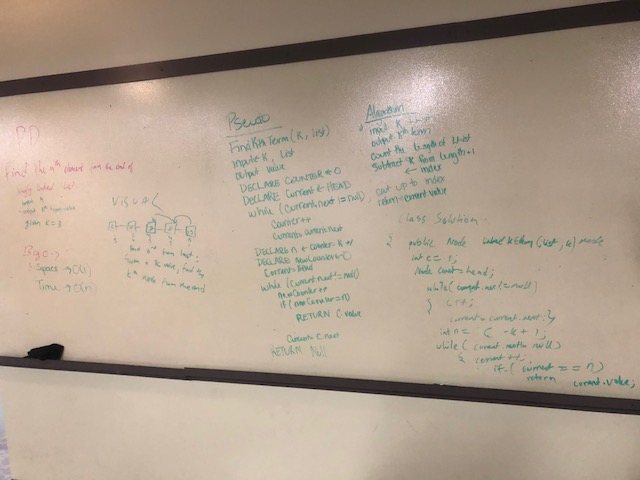 PD
Find the nth element from the end of
singly linked list
input k
output kth from value
given k = 2
Big O →
Space → O(1)
Time → O(n)
VISUAL
find kth from last
given a k value, find the
kth node from the end
Pseudo
FindKthTerm(K, list)
input ← K, List
output value
DECLARE COUNTER ← 0
DECLARE Current ← HEAD
while (Current.next != null)
Counter++
Current = current.next
DECLARE n ← counter - K +
DECLARE newCounter ← 0
Current = Head
while (current.next != null)
newCounter++
if (newCounter = n)
RETURN C.value
Current = C.next
RETURN Null
Algorithm
input K, List
output kth term
count the length of List
Subtract K from length + 1
← index
count up to index
return current value
Class Solution
{ public Node (List, k)
int c = 1;
Node current = head;
while (current.next != null)
{ c++;
current = current.next; }
int n = c - k + 1;
while (current.next != null)
{ current ++;
if ( current == n)
return current.value;